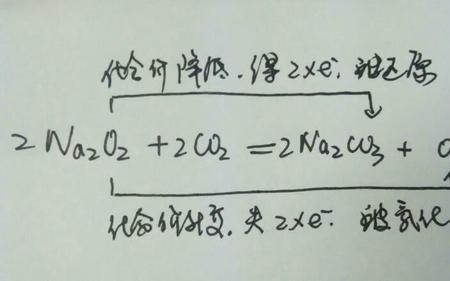 化合价降低.得2×e⁻.被还原
2Na₂O₂ + 2CO₂ = 2Na₂CO₃ +
化合价升高.失2×e⁻.被氧化